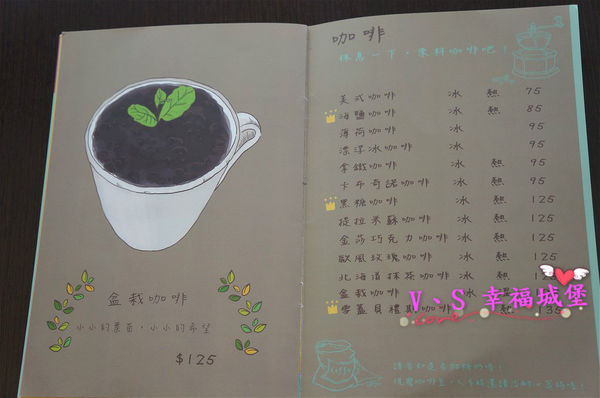 盆栽咖啡
小小的景苗,小小的希望
$125
咖啡
休息一下,來杯咖啡吧!
美式咖啡 冰 熱 75
海鹽咖啡 冰 熱 85
薄荷咖啡 冰 95
漂浮冰咖啡 冰 95
拿鐵咖啡 冰 熱 95
卡布奇諾咖啡 冰 熱 95
黑糖咖啡 冰 熱 125
提拉米蘇咖啡 冰 熱 125
金莎巧克力咖啡 冰 熱 125
歐風玫瑰咖啡 冰 熱 125
北海道抹茶咖啡 冰 熱 125
盆栽咖啡 冰
雪蓋貝禮 135
V、S 幸福城堡
love
Coffee